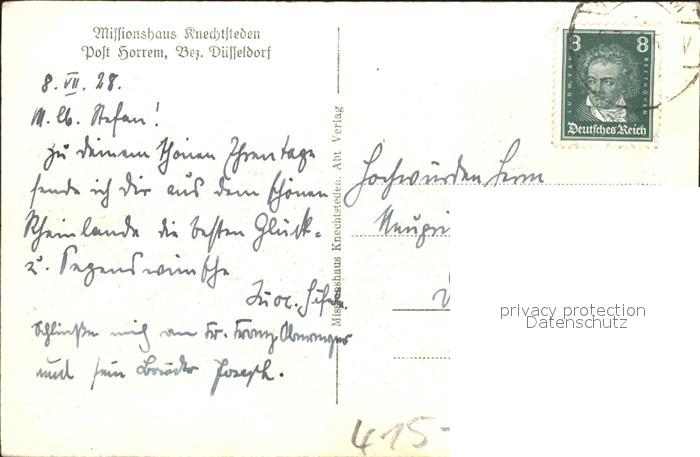 Missionshaus Knechtsteden
Post Horrem, Bez. Düsseldorf
8. VII. 28.
M. lb. Stefan!
Zu deinem schönen Ehrentage
sende ich dir aus dem schönen
Rheinlande die besten Glück-
u. Segenswünsche
Schließe mich an Fr. Franz
und sein Bruder Joseph.
Missionshaus Knechtsteden. Abt Verlag
Hochwürden Herrn
8 8
LUDW. VAN BEETHOVEN
Deutsches Reich
privacy protection
Datenschutz
415-